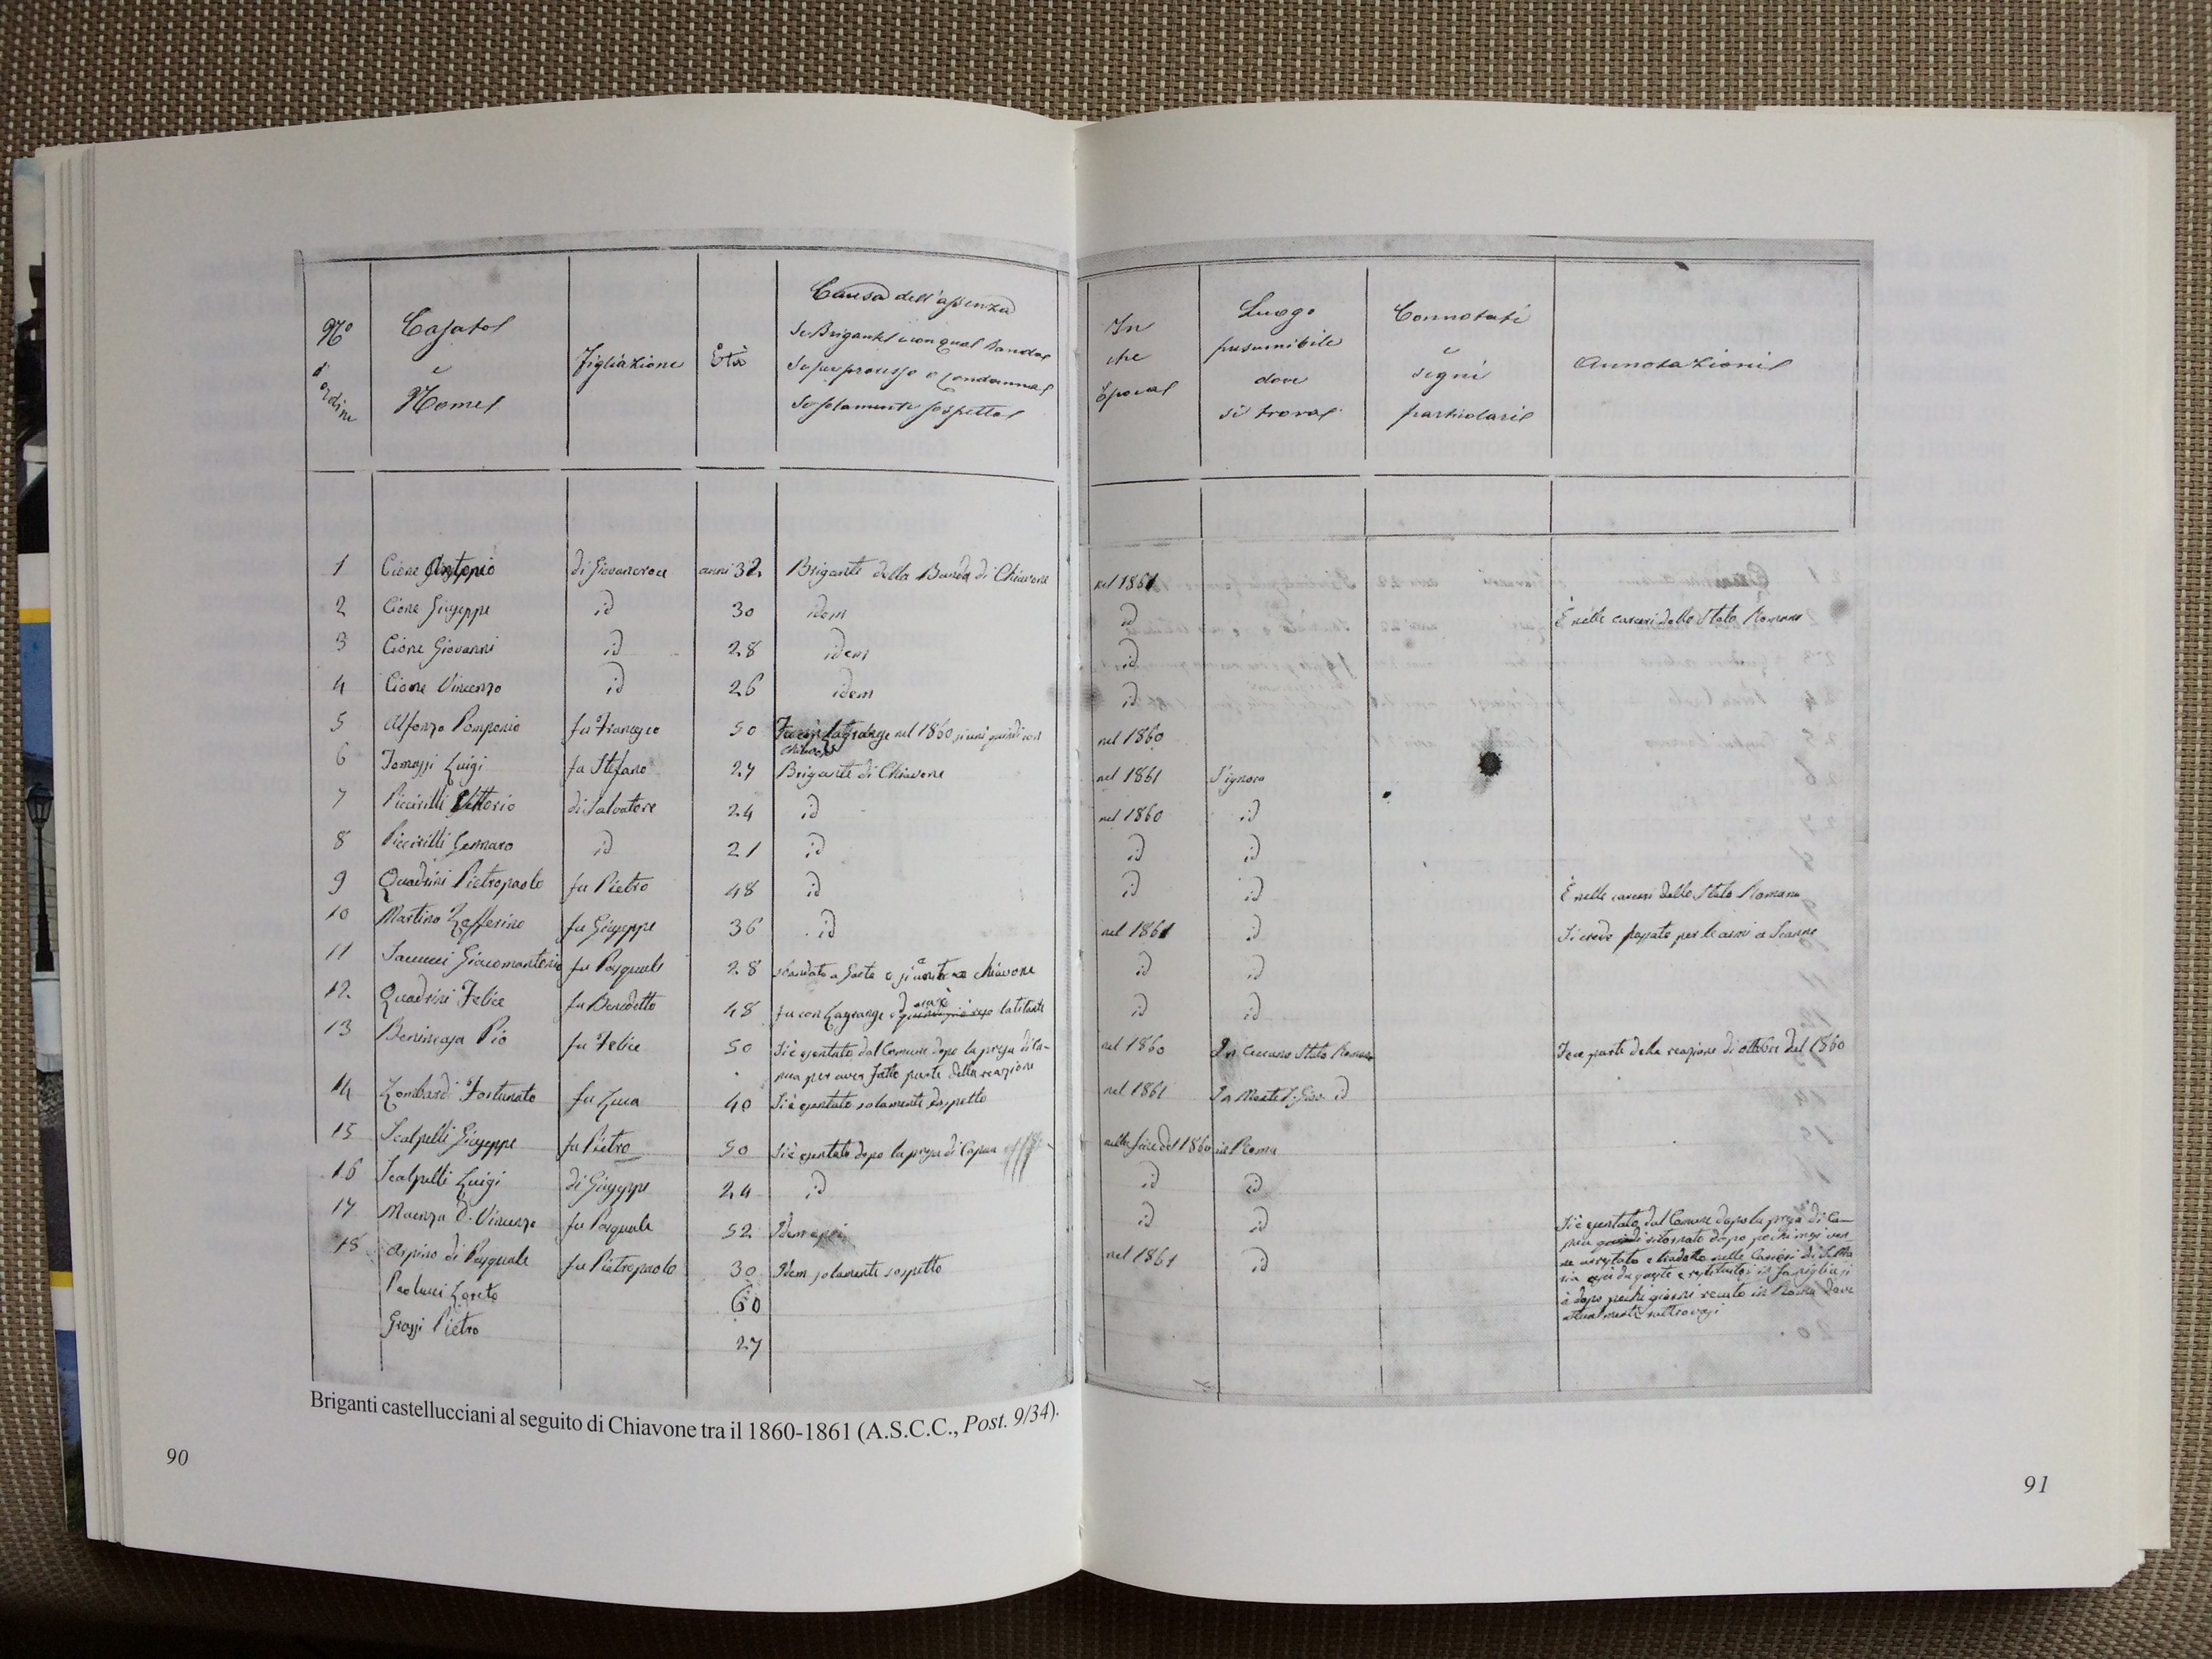 N.o d'ordine
Casato e Nome
Figliazione
Età
Causa dell'assenza
Se Briganti e con qual banda
Se per processo o condanna
Se solamente sospetto
In che Epoca
Luogo presumibile dove si trova
Connotati e segni particolari
Annotazioni
1 Cione Antonio di Giovancroce anni 32 Brigante della Banda di Chiavone nel 1861
2 Cione Giuseppe id 30 idem id È nelle carceri dello Stato Romano
3 Cione Giovanni id 28 idem id
4 Cione Vincenzo id 26 idem id
5 Alfonzo Pomponio fu Francesco 50 Fu con Lagrange nel 1860 quindi con Chiavone nel 1860
6 Tomassi Luigi fu Stefano 27 Brigante di Chiavone nel 1861 S'ignora
7 Piccirilli Vittorio di Salvatore 24 id nel 1860 id
8 Piccirilli Gennaro id 21 id id id
9 Quadrini Pietropaolo fu Pietro 48 id id id È nelle carceri dello Stato Romano
10 Martino Zefferino fu Giuseppe 36 id nel 1861 id Si crede passato per le armi a Scanno
11 Iacucci Giacomantonio fu Pasquale 28 sbandato a Gaeta e Chiavone id id
12 Quadrini Felice fu Benedetto 48 fu con Lagrange latitante id id
13 Benincasa Pio fu Felice 50 Si è esentato dal Comune dopo la presa di Ca-
pua per aver fatto parte della reazione nel 1860 In Ceccano Stato Romano Fece parte della reazione di ottobre del 1860
14 Lombardi Fortunato fu Luca 40 Si è esentato solamente sospetto nel 1861 In Monte S. Giov. id
15 Scalpelli Giuseppe fu Pietro 50 Si è esentato dopo la presa di Capua nella fine del 1860 in Roma
16 Scalpelli Luigi di Giuseppe 24 id id id
17 Maenza D. Vincenzo fu Pasquale 52 Idem id id
Si è esentato dal Comune dopo la presa di Ca-
pua quindi ritornato dopo pochi mesi ven-
ne arrestato e tradotto nelle Carceri di
e restituitosi in famiglia si
è dopo pochi giorni recato in Roma dove
attualmente
18 Aspino di Pasquale fu Pietropaolo 30 Idem solamente sospetto nel 1861 id
Paolucci Loreto 60
Grossi Pietro 27
Briganti castellucciani al seguito di Chiavone tra il 1860-1861 (A.S.C.C., Post. 9/34).
90
91